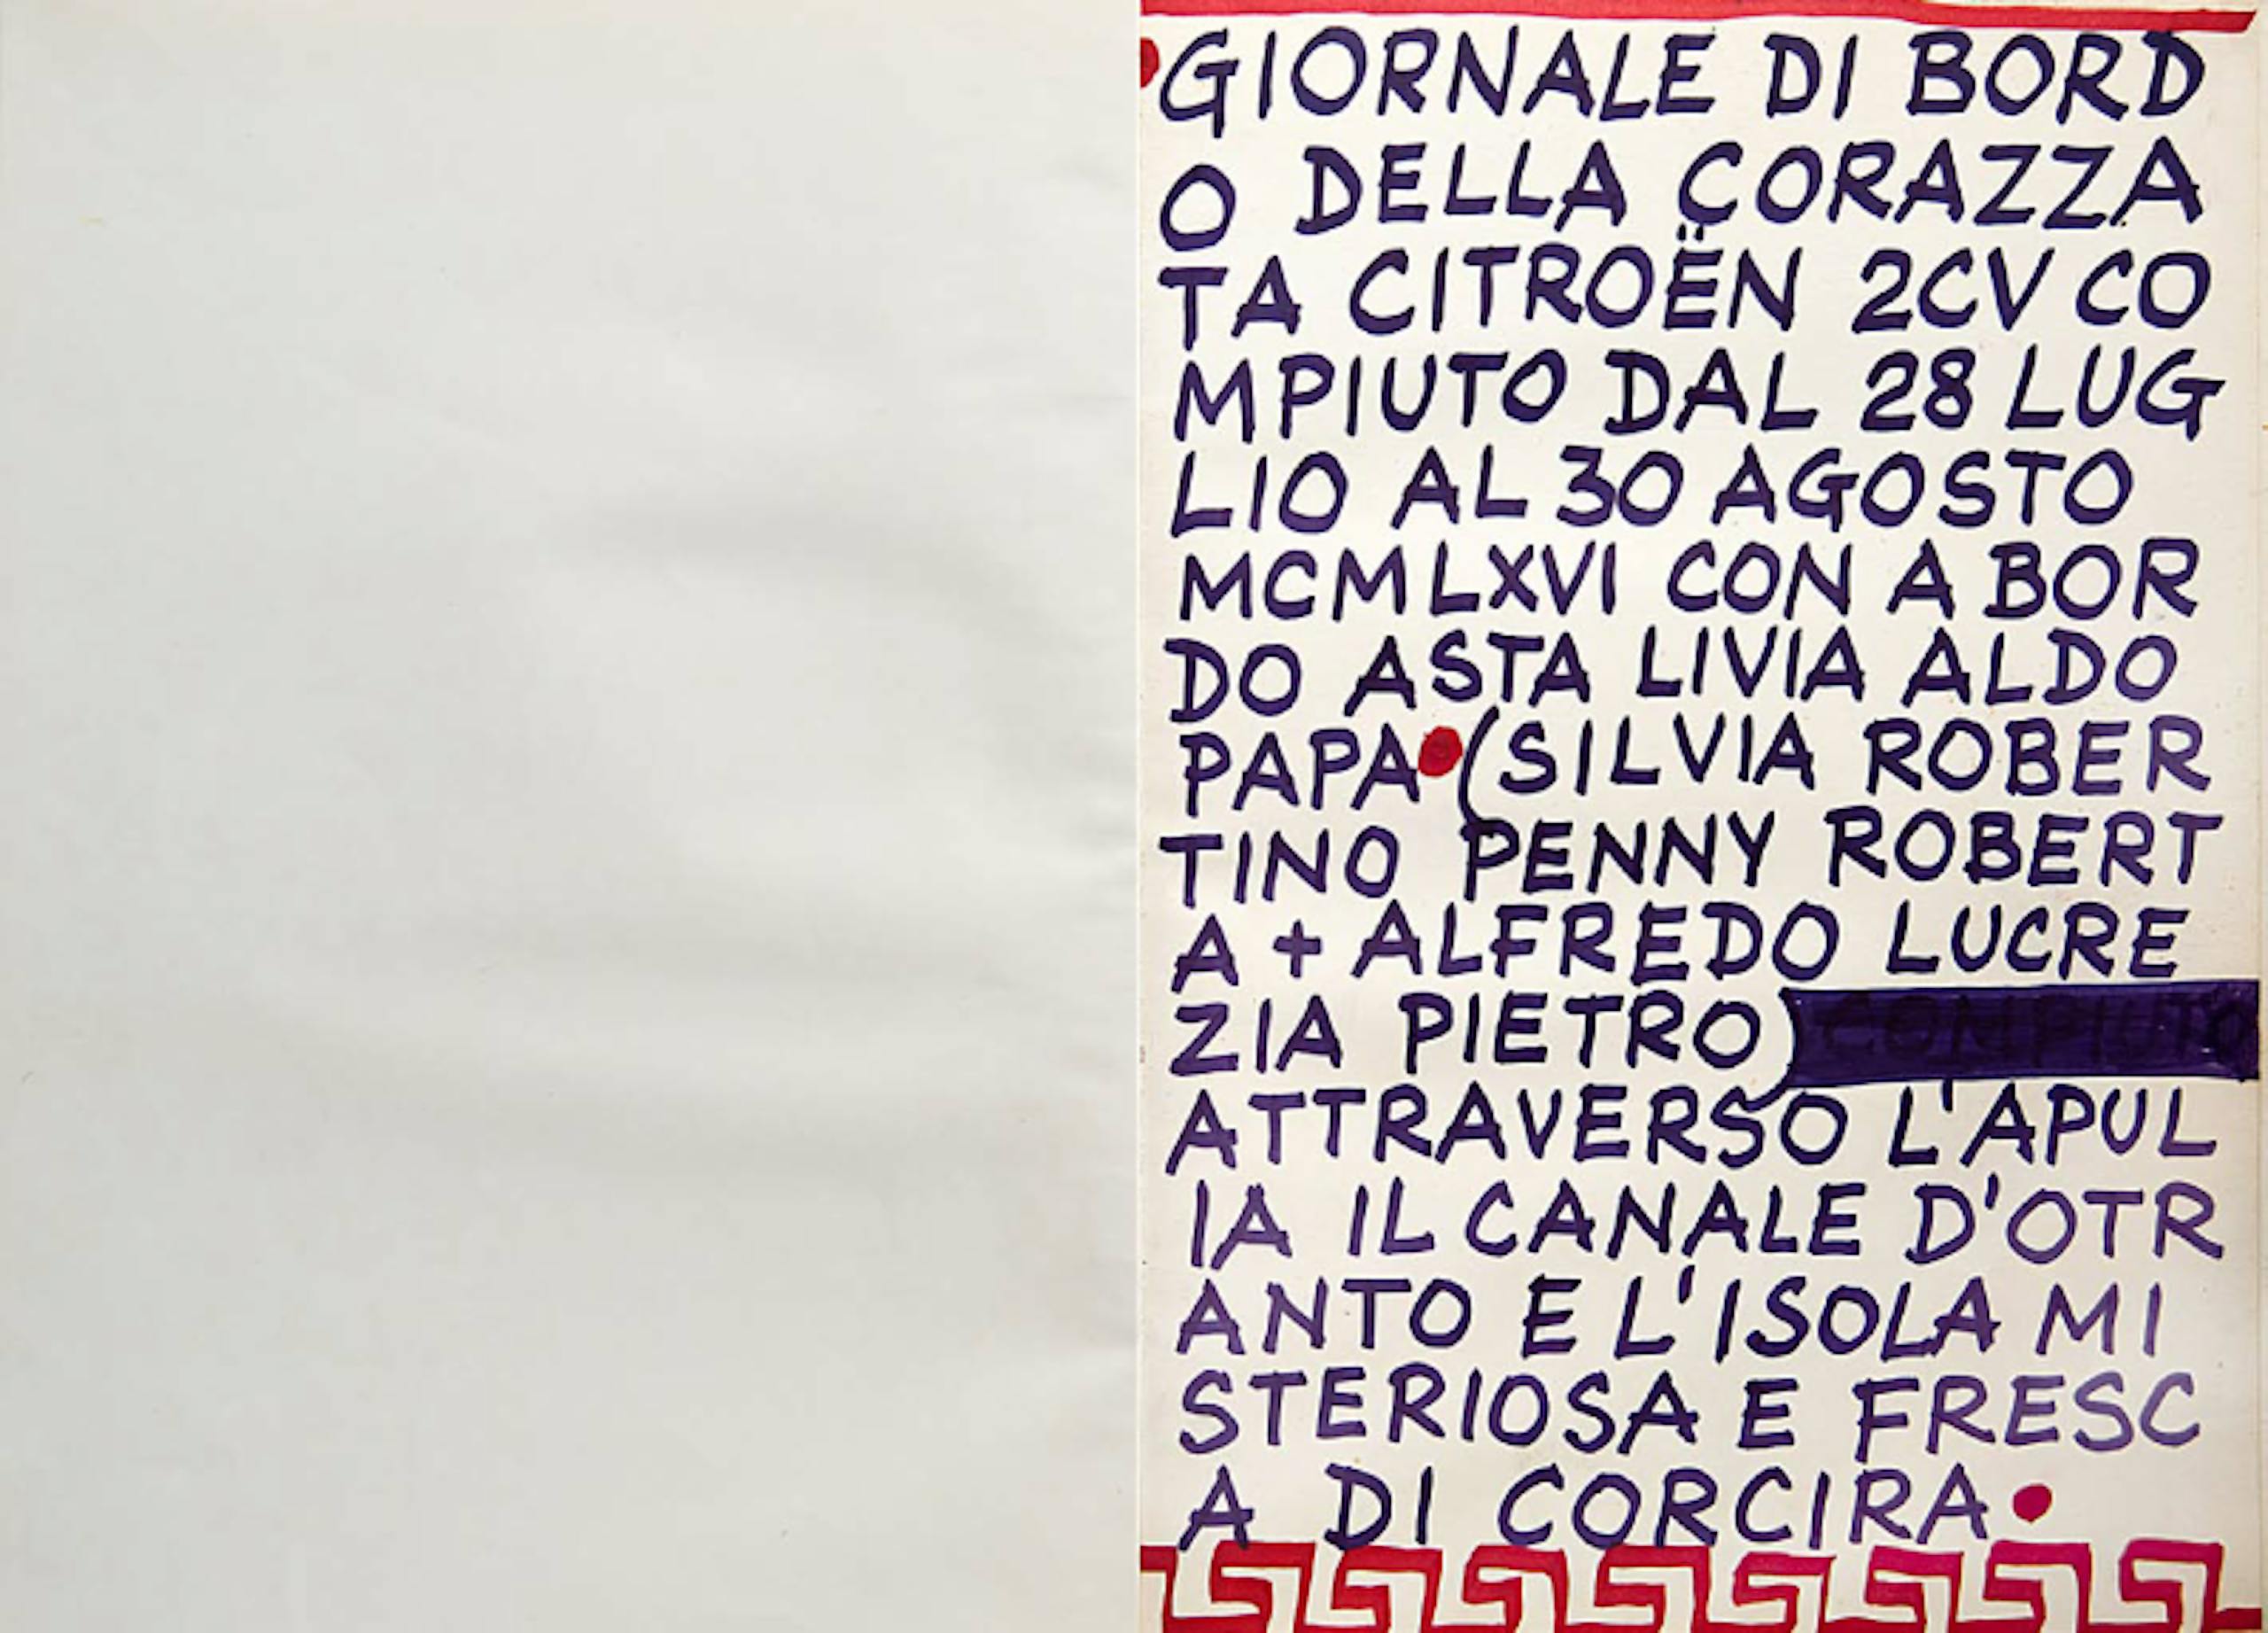 GIORNALE DI BORD
O DELLA CORAZZA
TA CITROËN 2CV CO
MPIUTO DAL 28 LUG
LIO AL 30 AGOSTO
MCMLXVI CON A BOR
DO ASTA LIVIA ALDO
PAPA•(SILVIA ROBER
TINO PENNY ROBERT
A + ALFREDO LUCRE
ZIA PIETRO)
ATTRAVERSO L'APUL
IA IL CANALE D'OTR
ANTO E L'ISOLA MI
STERIOSA E FRESC
A DI CORCIRA•